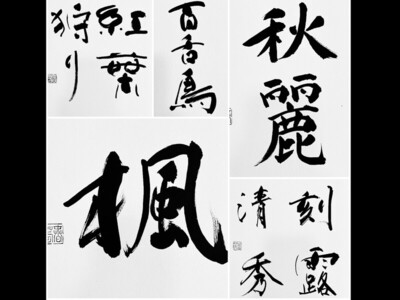 紅葉
狩り
百舌鳥
秋麗
楓
刻露
清秀